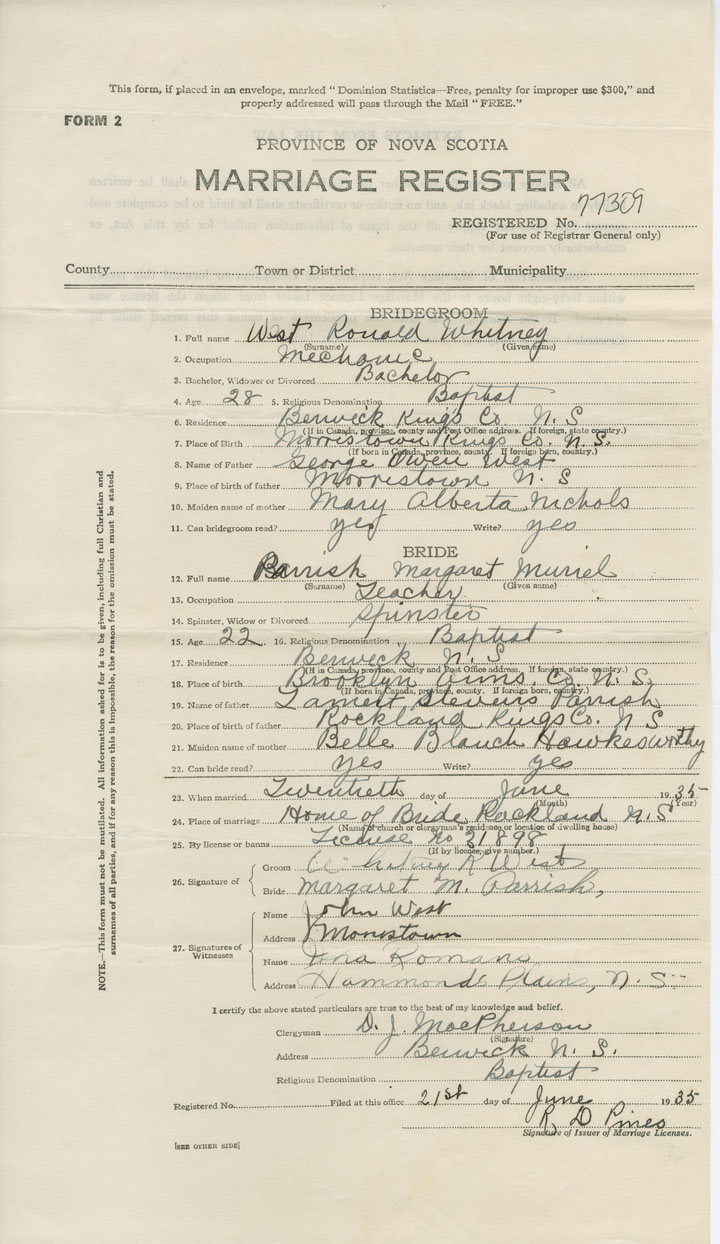 This form, if placed in an envelope, marked "Dominion Statistics—Free, penalty for improper use $300," and
properly addressed will pass through the Mail "FREE."
FORM 2
PROVINCE OF NOVA SCOTIA
MARRIAGE REGISTER
REGISTERED No. 77309
(For use of Registrar General only)
County Town or District Municipality
BRIDEGROOM
1. Full name West Ronald Whitney
(Surname) (Given name)
2. Occupation Mechanic
3. Bachelor, Widower or Divorced Bachelor
4. Age 28 5. Religious Denomination Baptist
6. Residence Berwick Kings Co. N. S
(If in Canada, province, county and Post Office address. If foreign, state country.)
7. Place of Birth Morristown Kings Co. N. S.
(If born in Canada, province, county. If foreign born, country.)
8. Name of Father George Owen West
9. Place of birth of father Morristown N. S
10. Maiden name of mother Mary Alberta Nichols
11. Can bridegroom read? yes Write? yes
BRIDE
12. Full name Parrish Margaret Muriel
(Surname) (Given name)
13. Occupation Teacher
14. Spinster, Widow or Divorced Spinster
15. Age 22 16. Religious Denomination Baptist
17. Residence Berwick N. S
(If in Canada, province, county and Post Office address. If foreign, state country.)
18. Place of birth Brooklyn Co. N. S.
(If born in Canada, province, county. If foreign born, country.)
19. Name of father Stevens Parrish
20. Place of birth of father Rockland Kings Co. N S
21. Maiden name of mother Belle Blanch Hawkesworthy
22. Can bride read? yes Write? yes
23. When married Twentieth day of June 1935
(Month) (Year)
24. Place of marriage Home of Bride Rockland N. S
(Name of church or clergyman's residence or location of dwelling house)
25. By license or banns License No 21898
(If by license, give number.)
26. Signature of Groom Whitney R West
Bride Margaret M. Parrish,
27. Signatures of Witnesses
Name John West
Address Morristown
Name Romans
Address Hammonds Plains, N. S.
I certify the above stated particulars are true to the best of my knowledge and belief.
Clergyman D. J. MacPherson
(Signature)
Address Berwick N. S.
Religious Denomination Baptist
Registered No. Filed at this office 21st day of June 1935
R. D Pines
Signature of Issuer of Marriage Licenses.
[SEE OTHER SIDE]
NOTE.—This form must not be mutilated. All information asked for is to be given, including full Christian and
surnames of all parties, and if for any reason this is impossible, the reason for the omission must be stated.